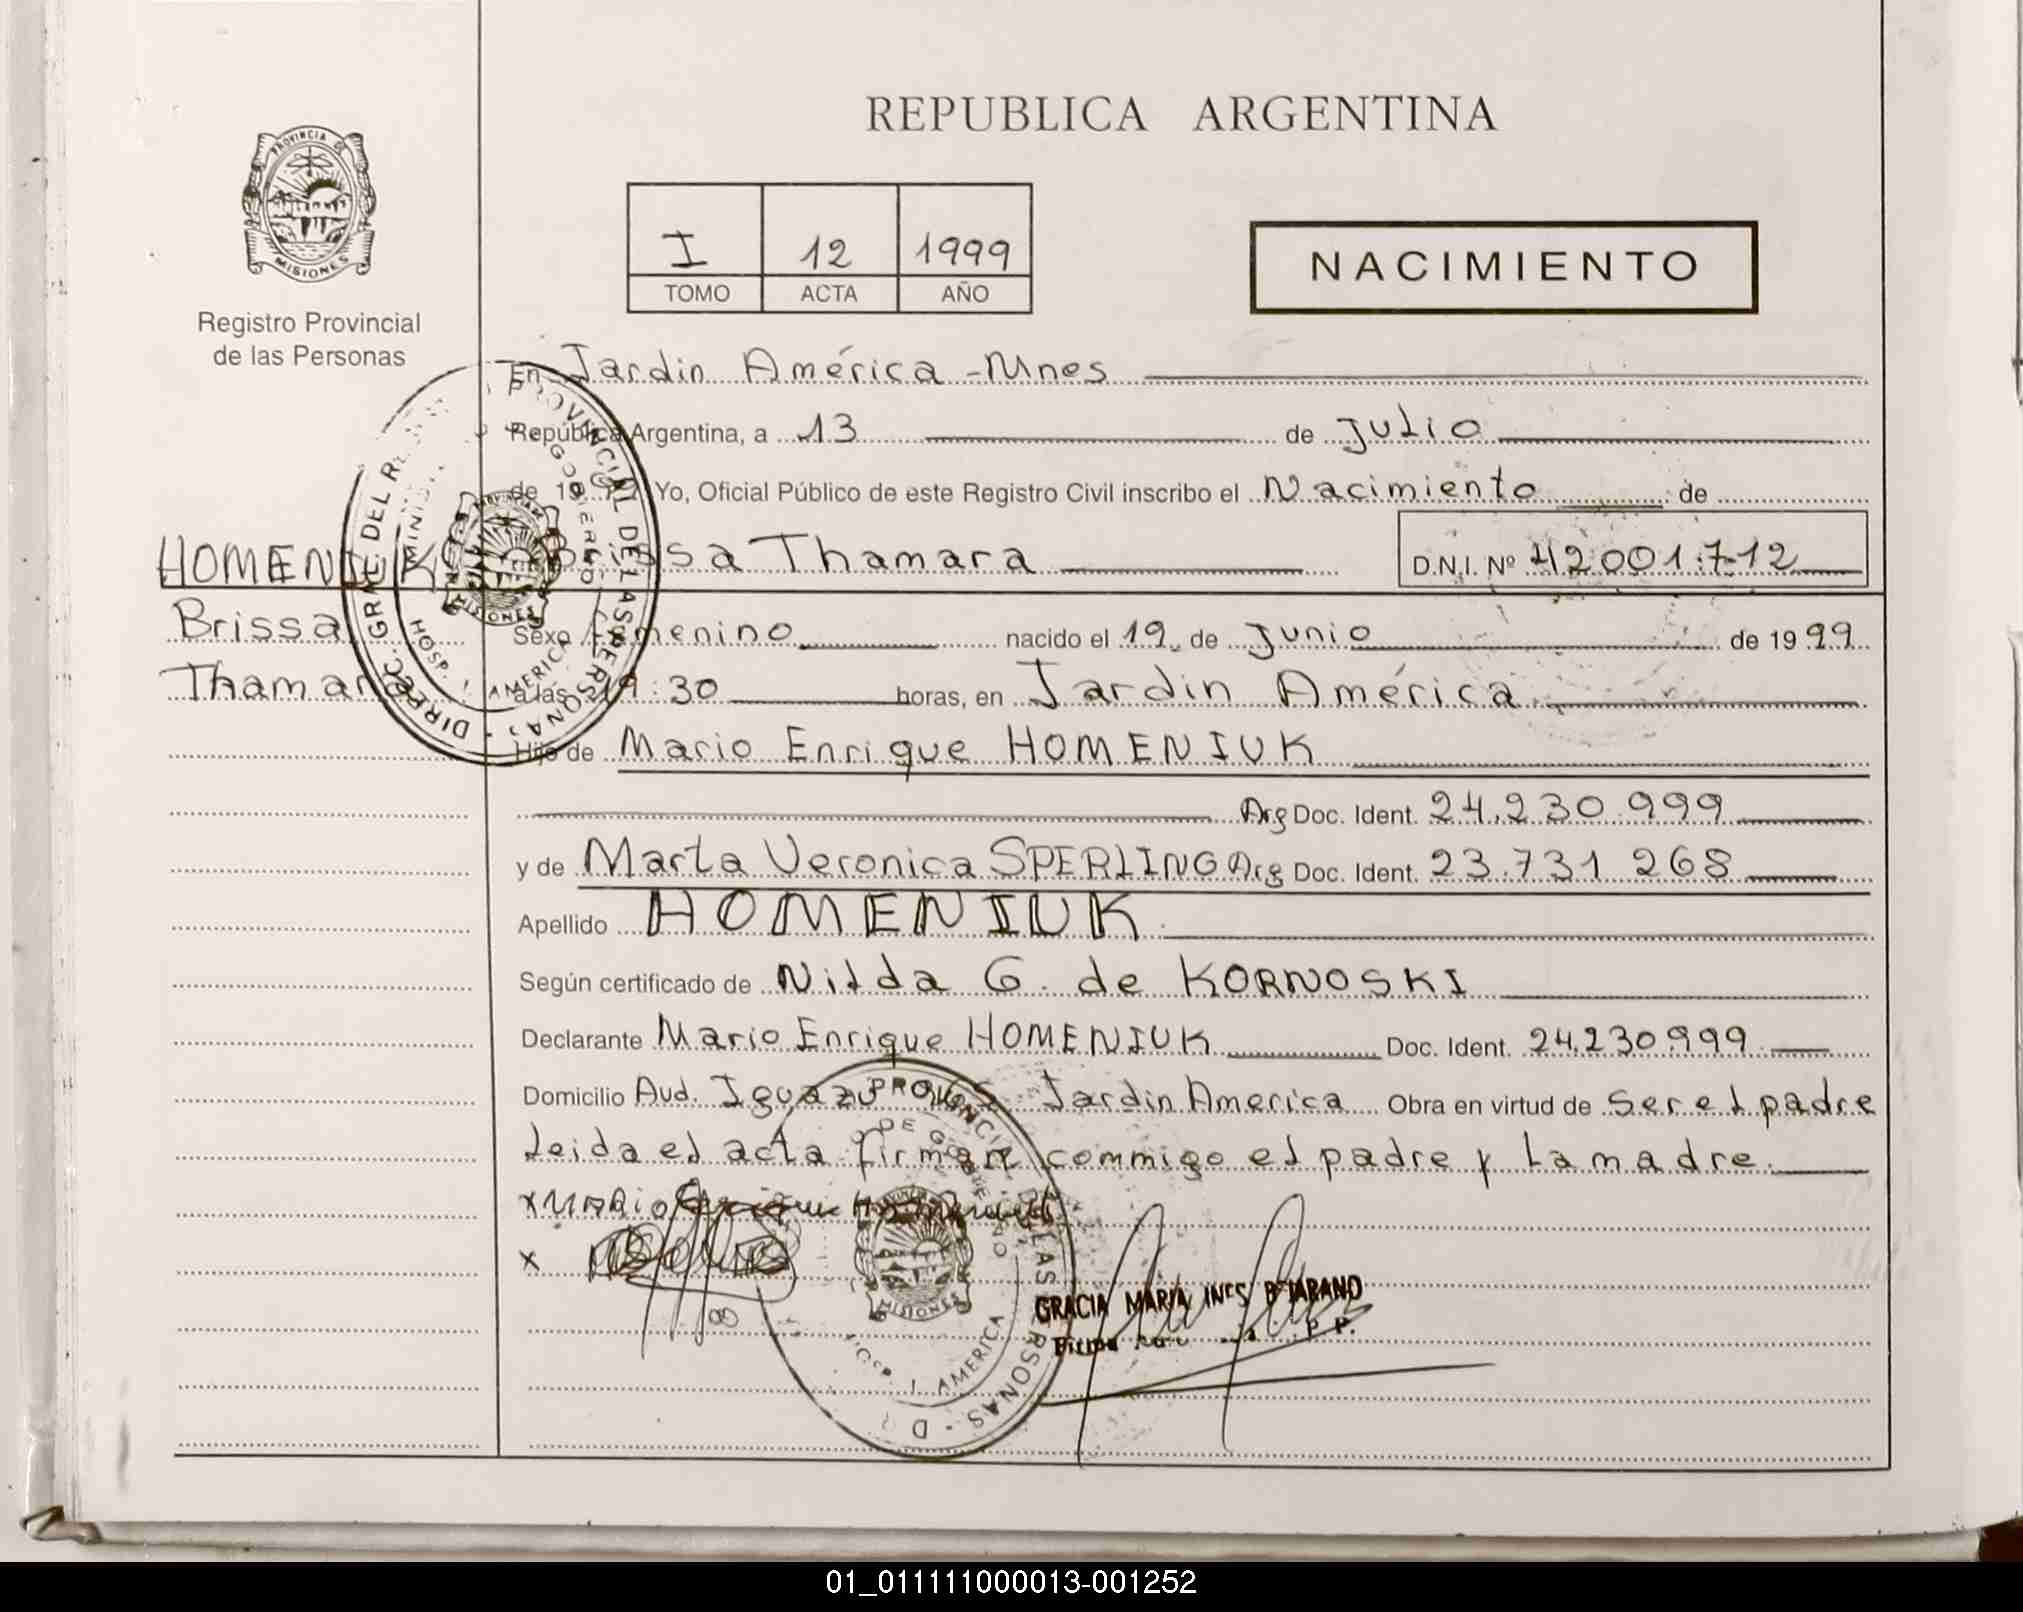 REPUBLICA ARGENTINA
PROVINCIA DE
MISIONES
Registro Provincial
de las Personas
I 12 1999
TOMO ACTA AÑO
NACIMIENTO
En Jardin América - Mnes
República Argentina, a 13 de Julio
de 19 Yo, Oficial Público de este Registro Civil inscribo el Nacimiento de
HOMENIUK Brissa Thamara D.N.I. Nº 42001.712
Brissa
Thamara
Sexo Femenino nacido el 19 de Junio de 1999
a las 19:30 horas, en Jardin América
Hijo de Mario Enrique HOMENIUK
Arg Doc. Ident. 24.230.999
y de Marta Veronica SPERLING Arg Doc. Ident. 23.731 268
Apellido HOMENIUK
Según certificado de Nilda G. de KORNOSKI
Declarante Mario Enrique HOMENIUK Doc. Ident. 24.230.999
Domicilio Avd. Iguazu Jardin America Obra en virtud de ser el padre
Leida el acta firman commigo el padre y la madre.
x MARIO Enrique
x
GRACIA MARIA INES BEJARANO
P.P.
DIREC. GRAL. DEL PROVINCIAL DE LAS PERSONAS
HOSP. J. AMERICA
PROVINCIAL DE LAS PERSONAS
DE GOBIERNO
MISIONES
HOSP. J. AMERICA
01_011111000013-001252